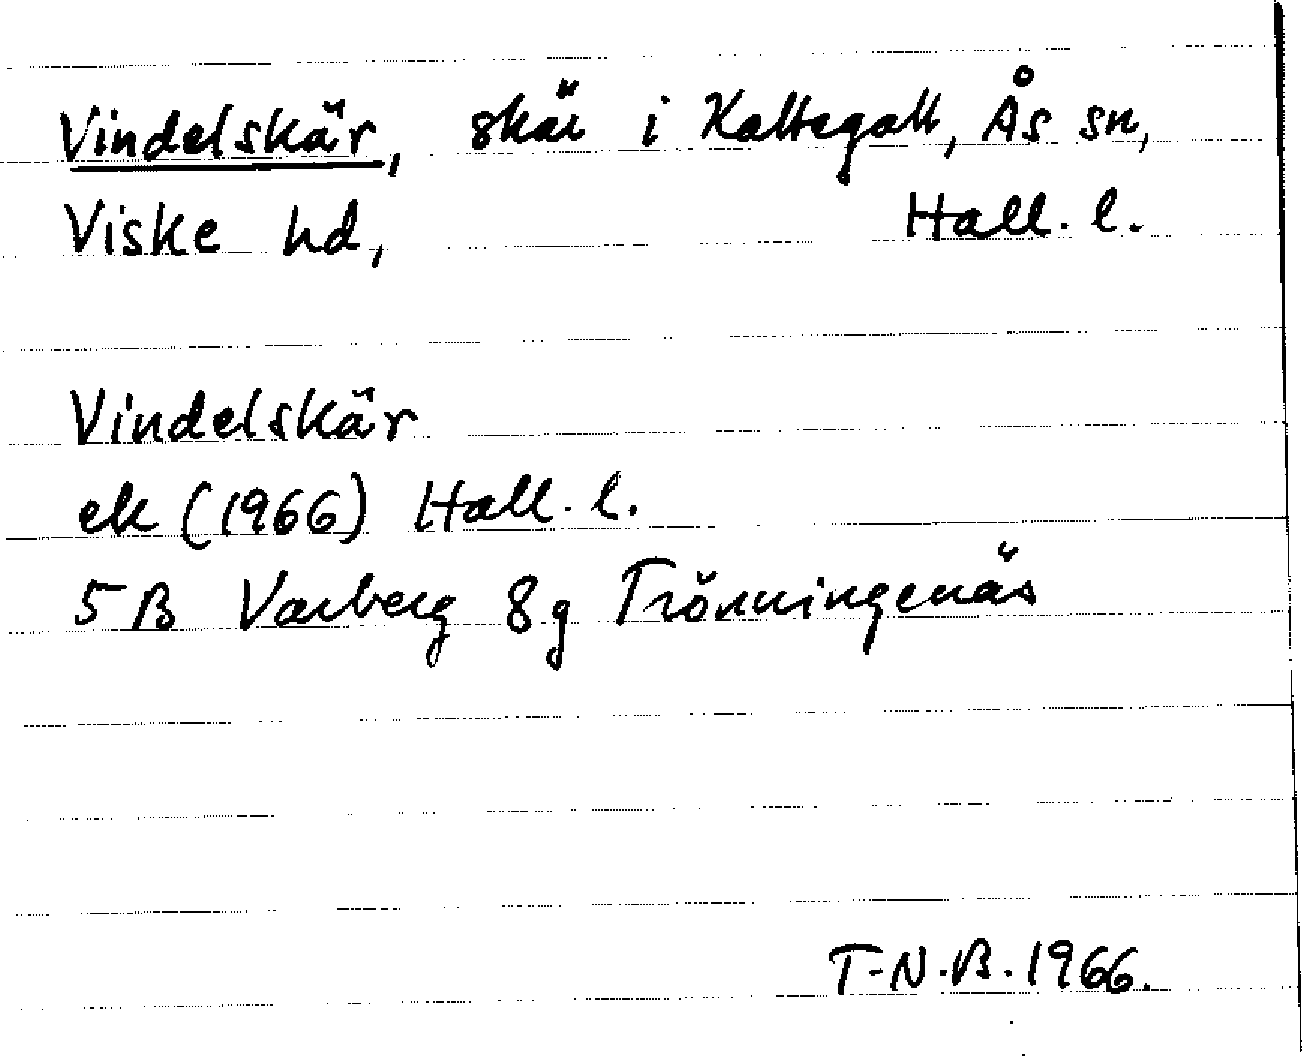 Vindelskär, skär i Kattegatt, Ås sn,
Viske hd, Hall. l.
Vindelskär
ek (1966) Hall. l.
5 B Varberg 8g Trönningenäs
T-N.B. 1966.